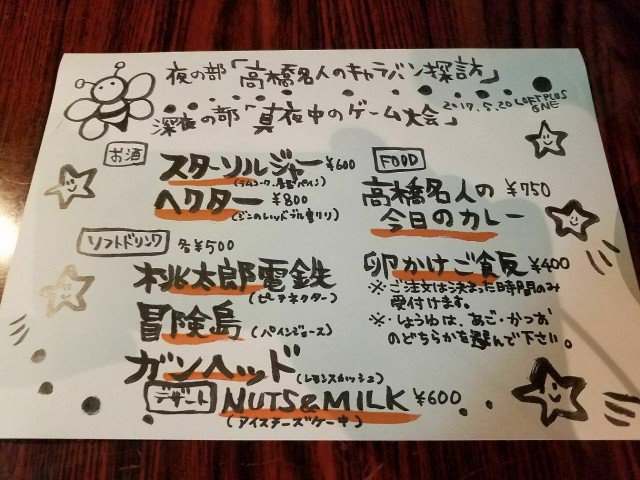 夜の部「高橋名人のキャラバン探訪」
深夜の部「真夜中のゲーム大会」
2017.5.20 LOFT PLUS ONE
お酒
スターソルジャー ¥600
ヘクター ¥800
(ジンのレッドブル割り)
ソフトドリンク 各¥500
桃太郎電鉄
(ピーチネクター)
冒険島
(パインジュース)
ガンヘッド
(レモンスカッシュ)
デザート NUTS&MILK ¥600
(アイスチーズケーキ)
FOOD
高橋名人の ¥750
今日のカレー
卵かけご食反 ¥400
※ご注文は決まった時間のみ
受付けます。
※しょうゆは、あご・かつお
のどちらかを選んで下さい。